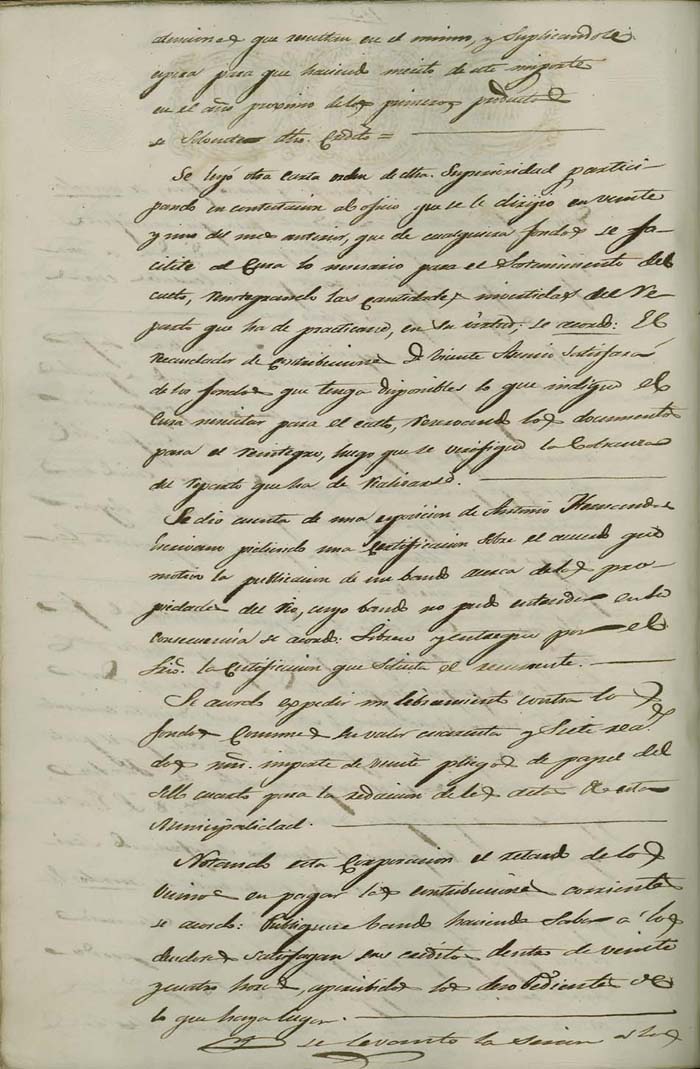 atenciones que resultan en el mismo, y suplicandole
espera para que haciendo merito de este importe
en el año proximo de los primeros productos
se solvente dho. Credito =
Se leyó otra carta orden de dha. Superioridad partici-
pando en contestacion al oficio que se le dirigio en veinte
y uno del mes anterior, que de cualquiera fondos se fa-
cilite al Cura lo necesario para el sostenimiento del
culto, reintegrando las cantidades invertidas del Re-
parto que ha de practicarse, en su virtud; se acordó: El
Recaudador de Contribuciones D. Vicente satisfará
de los fondos que tenga disponibles lo que indique el
Cura necesitar para el culto, los documentos
para el reintegro, luego que se verifique la Cobranza
del reparto que ha de realizarse.
Se dio cuenta de una exposicion de Antonio Hernandez
pidiendo una Certificacion sobre el acuerdo que
motivo la publicacion de un bando acerca de las pro-
piedades del Rio, cuyo bando no pudo entender en la
consecuencia se acordó: Librese y entregue por el
Srio. la Certificacion que solicita el recurrente.
Se acordó expedir un libramiento contra los
fondos Comunes su valor cuarenta y siete rea-
les vn. importe de veinte pliegos de papel del
Sello cuarto para la redaccion de las actas de esta
Municipalidad.
Notando esta Corporacion el retardo de los
vecinos en pagar las contribuciones corrientes
se acordó: Publiquese bando haciendo saber a los
deudores satisfagan sus creditos dentro de veinte
y cuatro horas, apercibidos los desobedientes de
lo que haya lugar.
se levanto la sesion a las